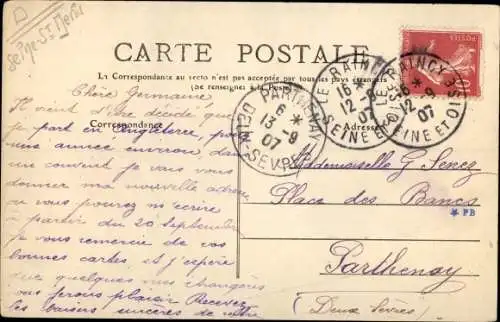 Seine-St-Denis
CARTE POSTALE
La Correspondance au recto n'est pas acceptée par tous les pays étrangers
(Se renseigner à la Poste)
Correspondance
Adresse
LE RAINCY
16 *
12 -9
07
SEINE ET OISE
LE RAINCY
16 *
12 -9
07
SEINE ET OISE
PARTHENAY
6 *
13 -9
07
DEUX SEVRES
POSTES
10
Chère Germaine
Il vient d'être décidé que
je pars en Angleterre, pour
une année environ, dans
un couvent je vais vous
donner ma nouvelle adresse
où vous pouvez m'écrire
à partir du 20 Septembre
je vous remercie de vos
bonnes cartes et j'espère
que quelques mes changeais
vous feront plaisir Recevez
les baisers sincères de votre
Mademoiselle G Senez
Place des Bancs
* PB
Parthenay
(Deux Sèvres)